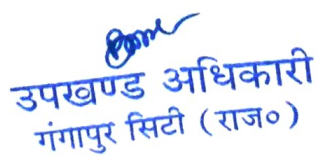 उपखण्ड अधिकारी
गंगापुर सिटी (राज०)